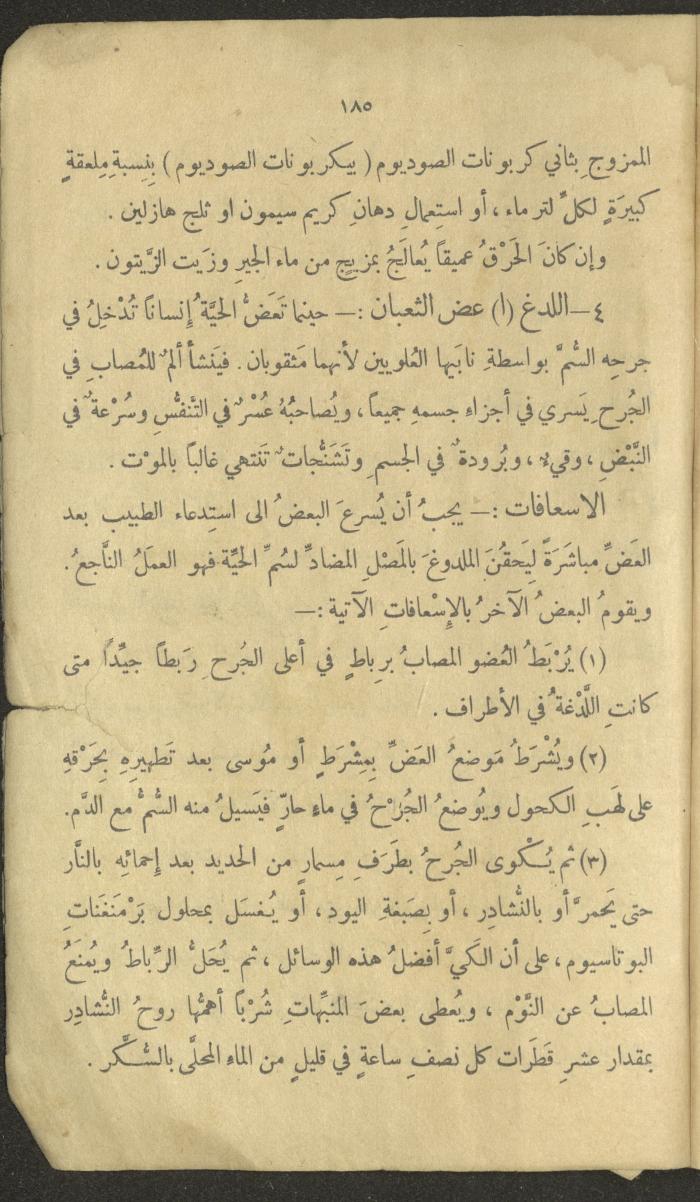 ١٨٥
الممزوج بِثاني كربونات الصوديوم ( بيكربونات الصوديوم ) بِنِسبةِ مِلعقةٍ
كبيرَةٍ لكلِّ لتر ماء ، أو استِعمالِ دهانِ كريم سيمون او ثلج هازلين .
وإن كانَ الحَرْقُ عميقاً يُعالَجُ بمزيجٍ من ماء الجيرِ وزَيت الزَّيتون .
٤ – اللدغ (١) عض الثعبان : – حينما تَعَضُّ الحيَّةُ إنساناً تُدْخِلُ في
جرحِه السُّمَّ بواسطةِ نابَيها العُلويين لأنهما مَثقوبان . فيَنشأ ألمٌ للمُصابِ في
الجُرح ِ يَسري في أجزاءِ جسمهِ جميعاً ، ويُصاحبُهُ عُسْرٌ في التَّنفُّس وسُرْعةٌ في
النَّبْضِ ، وقيءٌ ، وبُرودةٌ في الجسم ِ وتَشَنُّجاتٌ تَنتهي غالباً بالموْت .
الاسعافات : – يجبُ أن يُسرعَ البعضُ الى استِدعاء الطبيب بعد
العَضِّ مباشَرَةً لِيَحقُنَ الملدوغَ بالمَصْلِ المضادِّ لسُمِّ الحيَّة فهو العمَلُ النَّاجعُ .
ويقومُ البعضُ الآخرُ بالإِسْعافاتِ الآتية : –
(١) يُرْبَطُ العُضو المصابُ برِباطٍ في أعلى الجُرح ِ رَبطاً جيِّداً متى
كانتِ اللَّدْغةُ في الأطراف .
(٢) ويُشْرَطُ مَوضعُ العَضِّ بِمِشْرَطٍ أو مُوسى بعد تَطهيرِهِ بِحَرْقهِ
على لهَبِ الكحول ويُوضعُ الجُرْحُ في ماءٍ حارٍّ فيَسيلُ منه السُّمُّ مع الدَّم .
(٣) ثم يُكْوى الجُرحُ بطَرَفِ مِسمارٍ من الحديد بعد إحمائه بالنَّار
حتى يَحمرَّ أو بالنُّشادِر ، أو بِصَبغةِ اليود ، أو يُغسَل بمحلول بَرْمَنغَناتِ
البوتاسيوم ، على أن الكَيَّ أفضلُ هذه الوسائل ، ثم يُحَلُّ الرِّباطُ ويُمنَعُ
المصابُ عن النَّوْم ، ويُعطى بعضَ المنبِّهاتِ شُرْباً أهمُّها روحُ النُّشادِر
بمقدار عشرِ قَطَرات كل نصفِ ساعةٍ في قليلٍ من الماءِ المحلَّى بالسُّكَّر .